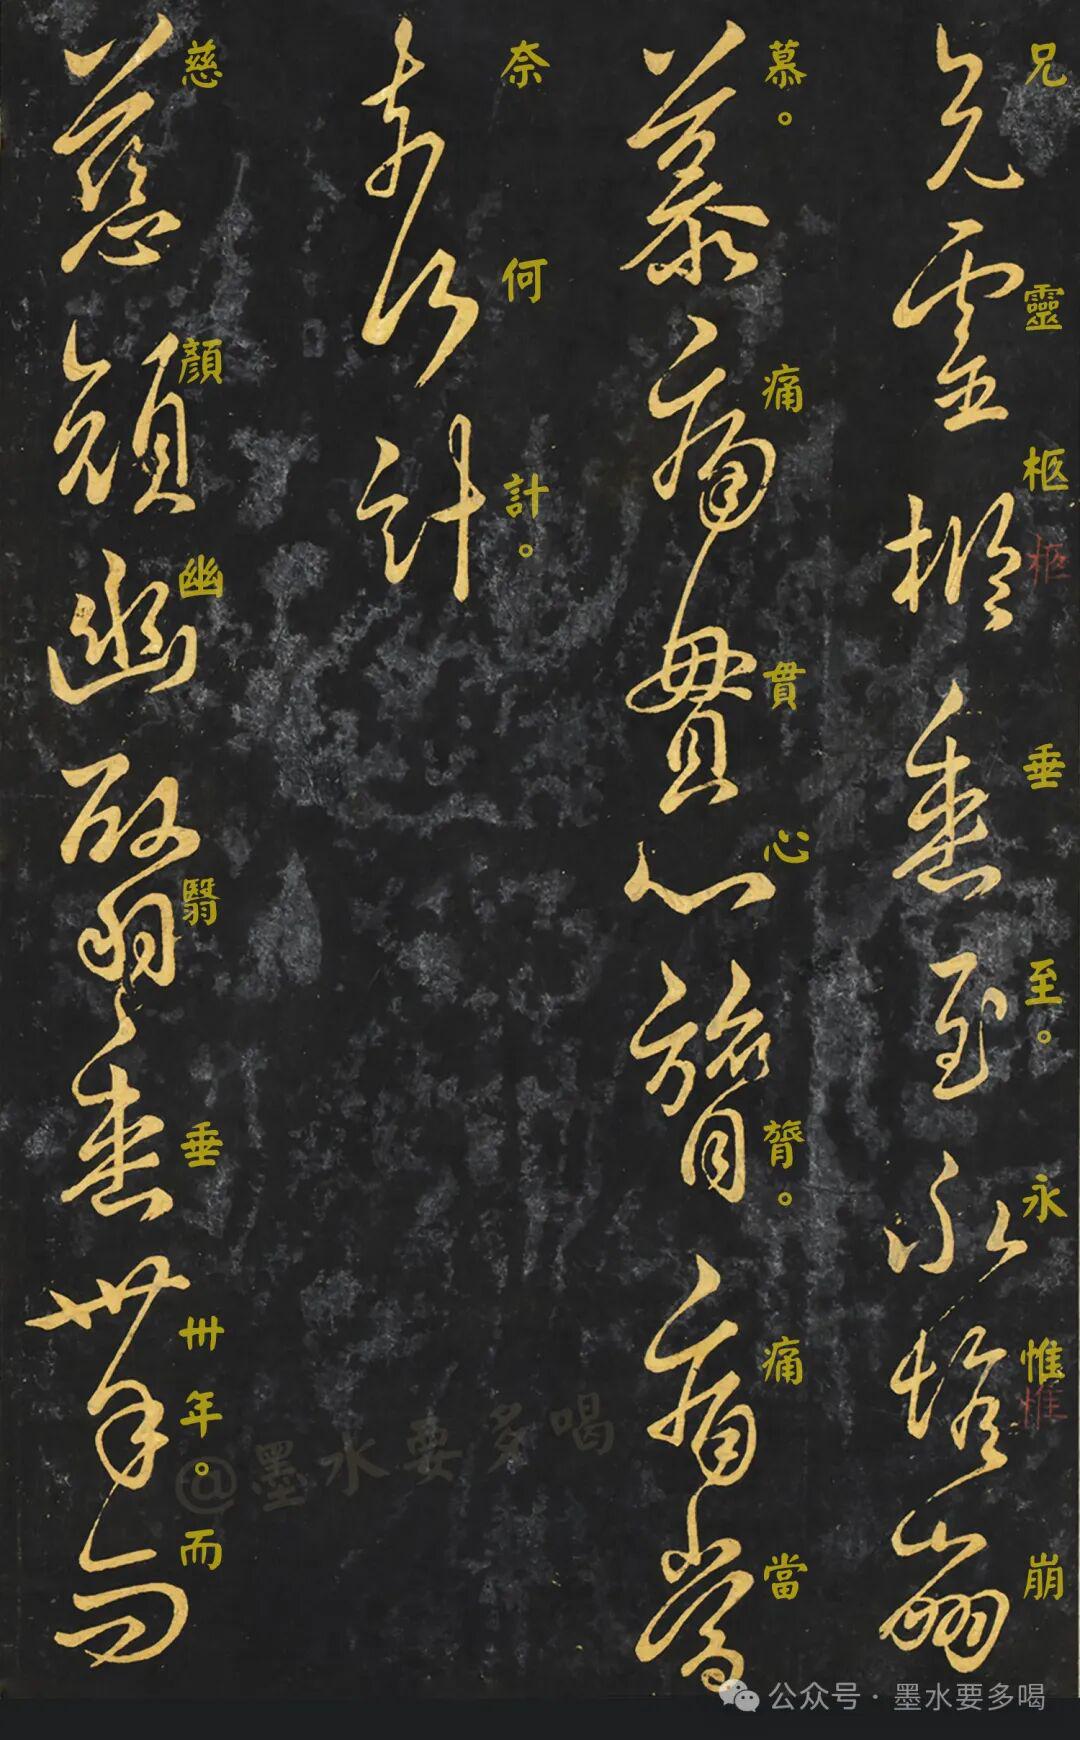 兄靈柩垂至。永惟崩
慕。痛貫心膂。痛當
奈何計。
慈顏幽翳垂卌年。而
柩
惟
@墨水要多喝
公众号·墨水要多喝